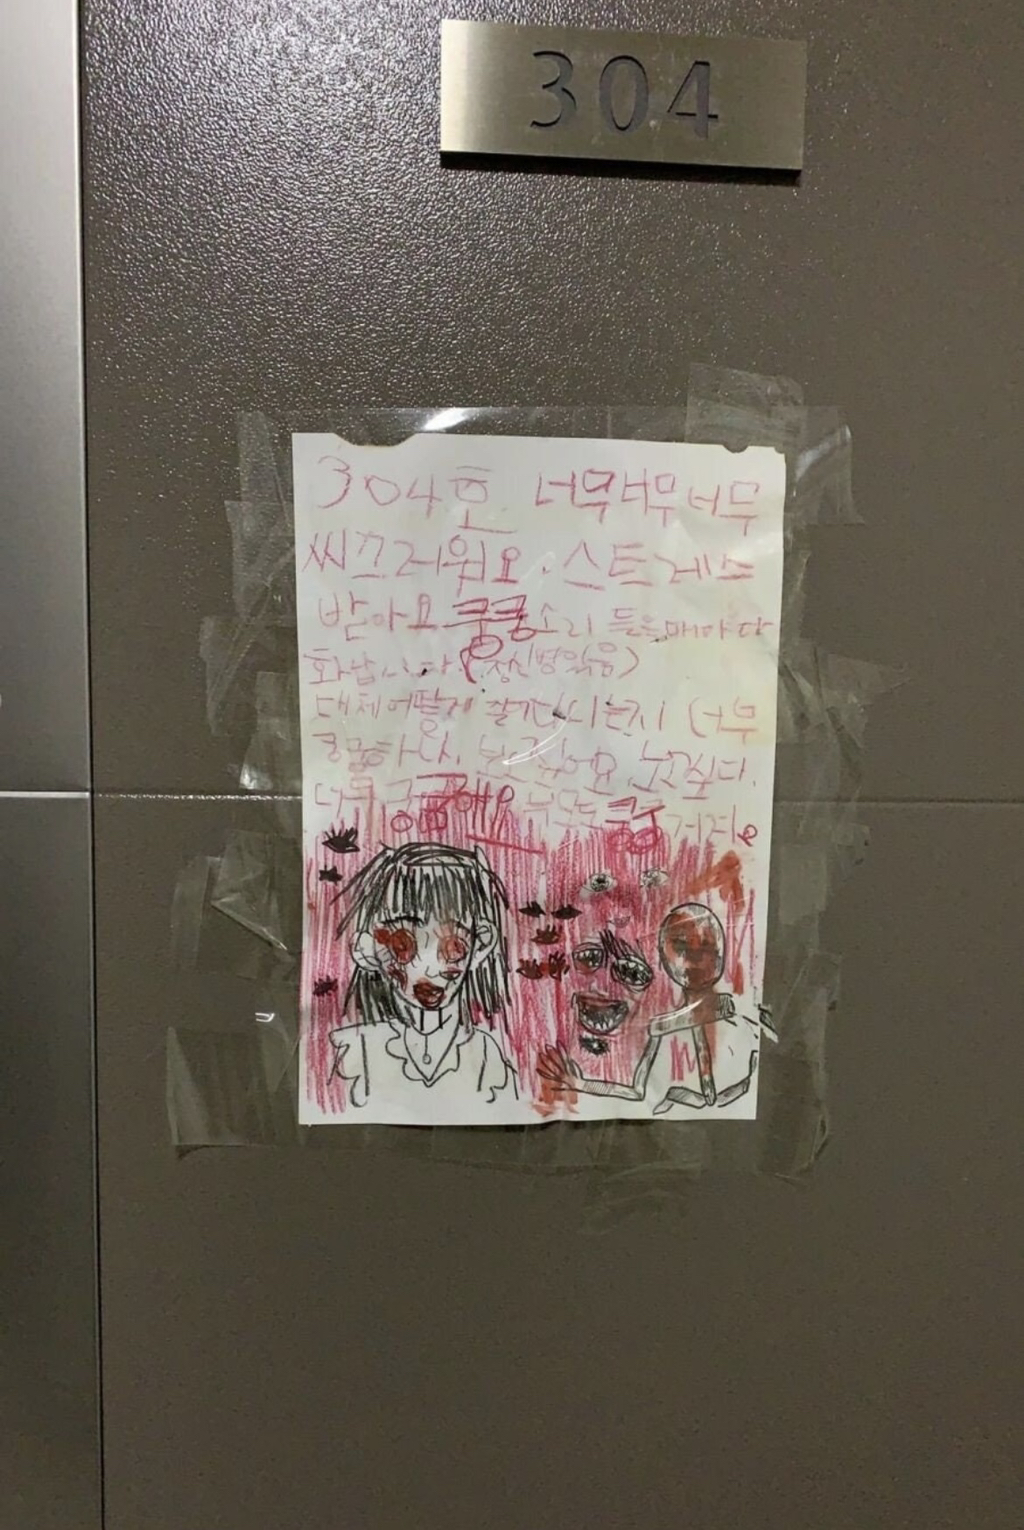 304
304호 너무너무너무
씨끄러워요. 스트레스
받아요 쿵쿵소리 들을때마다
화납니다. (정신병있음)
대체 어떻게 걸어다니는지 너무
궁금하네. 보고싶어요 보고싶다.
너무 궁금해요 쿵쿵거리